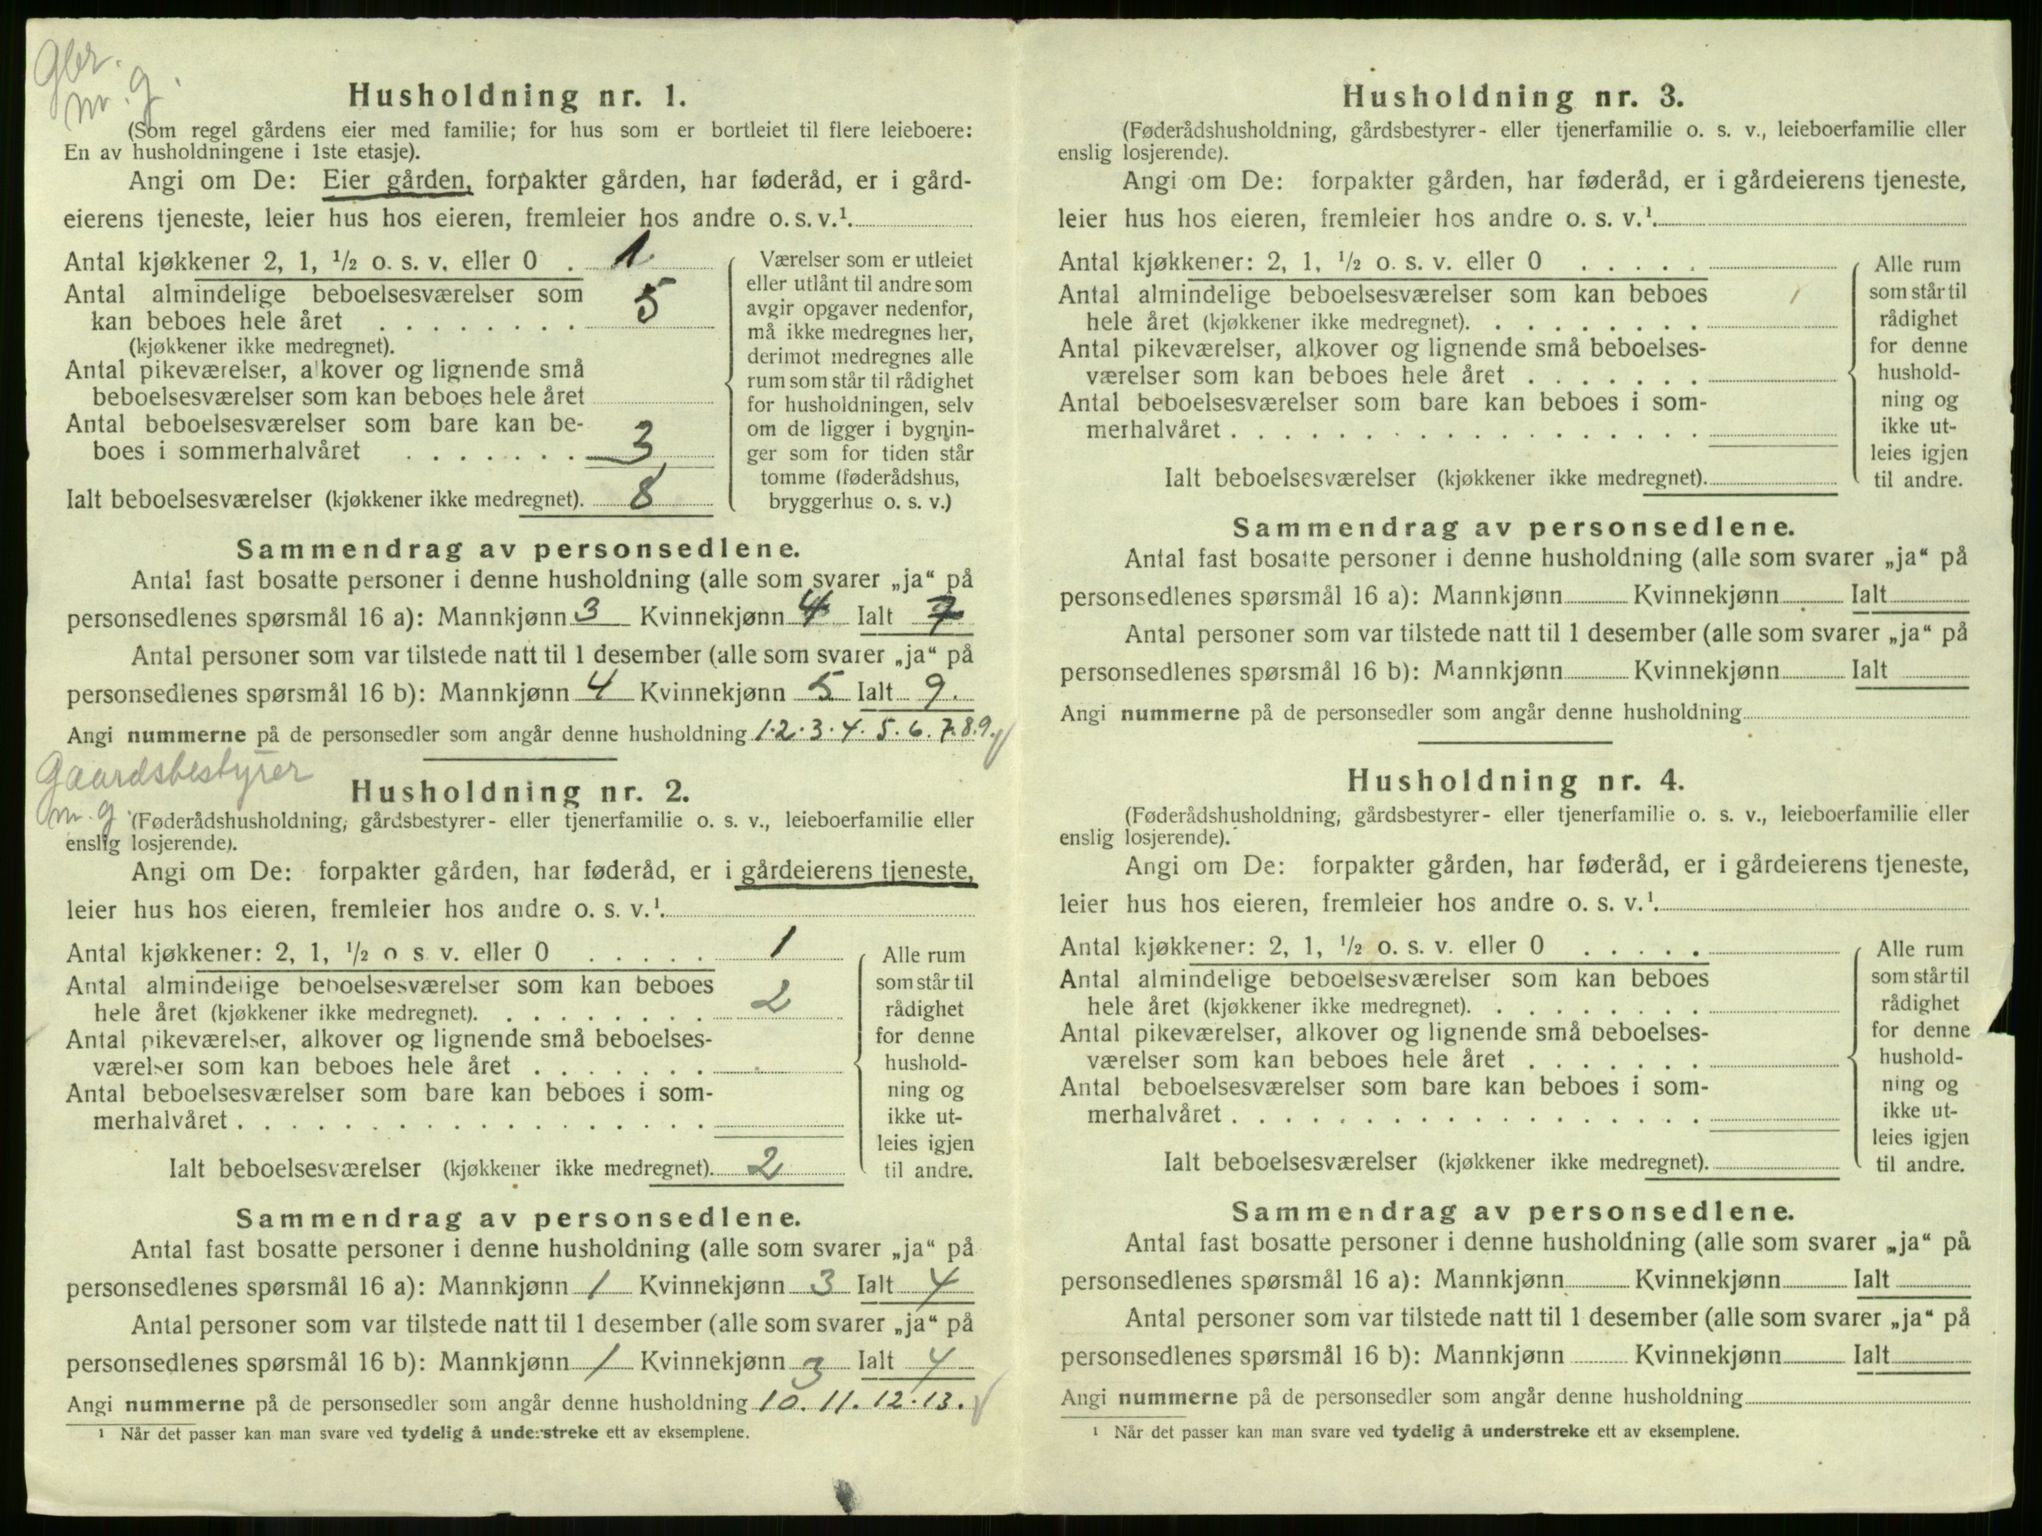 Gbr.
m. g.
Husholdning nr. 1.
(Som regel gårdens eier med familie; for hus som er bortleiet til flere leieboere:
En av husholdningene i 1ste etasje).
Angi om De: Eier gården, forpakter gården, har føderåd, er i gård-
eierens tjeneste, leier hus hos eieren, fremleier hos andre o. s. v.¹
Antal kjøkkener 2, 1, ½ o. s. v. eller 0 . 1.
Antal almindelige beboelsesværelser som
kan beboes hele året . . . . . . . . 5
(kjøkkener ikke medregnet).
Antal pikeværelser, alkover og lignende små
beboelsesværelser som kan beboes hele året
Antal beboelsesværelser som bare kan be-
boes i sommerhalvåret . . . . . . . 3
Ialt beboelsesværelser (kjøkkener ikke medregnet). 8
Værelser som er utleiet
eller utlånt til andre som
avgir opgaver nedenfor,
må ikke medregnes her,
derimot medregnes alle
rum som står til rådighet
for husholdningen, selv
om de ligger i bygnin-
ger som for tiden står
tomme (føderådshus,
bryggerhus o. s. v.)
Sammendrag av personsedlene.
Antal fast bosatte personer i denne husholdning (alle som svarer „ja“ på
personsedlenes spørsmål 16 a): Mannkjønn 3 Kvinnekjønn 4 Ialt 7
Antal personer som var tilstede natt til 1 desember (alle som svarer „ja“ på
personsedlenes spørsmål 16 b): Mannkjønn 4 Kvinnekjønn 5 Ialt 9.
Angi nummerne på de personsedler som angår denne husholdning 1.2.3.4.5.6.7.8.9.
Gaardsbestyrer
m. g
Husholdning nr. 2.
(Føderådshusholdning, gårdsbestyrer- eller tjenerfamilie o. s. v., leieboerfamilie eller
enslig losjerende).
Angi om De: forpakter gården, har føderåd, er i gårdeierens tjeneste,
leier hus hos eieren, fremleier hos andre o. s. v.¹
Antal kjøkkener: 2, 1, ½ o s v. eller 0 . . . . . 1
Antal almindelige beboelsesværelser som kan beboes
hele året (kjøkkener ikke medregnet). . . . . . . . . 2
Antal pikeværelser, alkover og lignende små beboelses-
værelser som kan beboes hele året . . . . . . .
Antal beboelsesværelser som bare kan beboes i som-
merhalvåret . . . . . . . . . . . . . . . . . .
Ialt beboelsesværelser (kjøkkener ikke medregnet). 2
Alle rum
som står til
rådighet
for denne
hushold-
ning og
ikke ut-
leies igjen
til andre.
Sammendrag av personsedlene.
Antal fast bosatte personer i denne husholdning (alle som svarer „ja“ på
personsedlenes spørsmål 16 a): Mannkjønn 1 Kvinnekjønn 3 Ialt 4
Antal personer som var tilstede natt til 1 desember (alle som svarer „ja“ på
personsedlenes spørsmål 16 b): Mannkjønn 1 Kvinnekjønn 3 Ialt 4
Angi nummerne på de personsedler som angår denne husholdning 10.11.12.13.
¹ Når det passer kan man svare ved tydelig å understreke ett av eksemplene.
Husholdning nr. 3.
(Føderådshusholdning, gårdsbestyrer- eller tjenerfamilie o. s. v., leieboerfamilie eller
enslig losjerende).
Angi om De: forpakter gården, har føderåd, er i gårdeierens tjeneste,
leier hus hos eieren, fremleier hos andre o. s. v.¹
Antal kjøkkener: 2, 1, ½ o. s. v. eller 0 . . . . .
Antal almindelige beboelsesværelser som kan beboes
hele året (kjøkkener ikke medregnet). . . . . . . . .
Antal pikeværelser, alkover og lignende små beboelses-
værelser som kan beboes hele året . . . . . . .
Antal beboelsesværelser som bare kan beboes i som-
merhalvåret . . . . . . . . . . . . . . . . . .
Ialt beboelsesværelser (kjøkkener ikke medregnet).
Alle rum
som står til
rådighet
for denne
hushold-
ning og
ikke ut-
leies igjen
til andre.
Sammendrag av personsedlene.
Antal fast bosatte personer i denne husholdning (alle som svarer „ja“ på
personsedlenes spørsmål 16 a): Mannkjønn Kvinnekjønn Ialt
Antal personer som var tilstede natt til 1 desember (alle som svarer „ja“ på
personsedlenes spørsmål 16 b): Mannkjønn Kvinnekjønn Ialt
Angi nummerne på de personsedler som angår denne husholdning
Husholdning nr. 4.
(Føderådshusholdning, gårdsbestyrer- eller tjenerfamilie o. s. v., leieboerfamilie eller
enslig losjerende).
Angi om De: forpakter gården, har føderåd, er i gårdeierens tjeneste,
leier hus hos eieren, fremleier hos andre o. s. v.¹
Antal kjøkkener: 2, 1, ½ o. s. v. eller 0 . . . . .
Antal almindelige beboelsesværelser som kan beboes
hele året (kjøkkener ikke medregnet). . . . . . . . .
Antal pikeværelser, alkover og lignende små beboelses-
værelser som kan beboes hele året . . . . . . .
Antal beboelsesværelser som bare kan beboes i som-
merhalvåret . . . . . . . . . . . . . . . . . .
Ialt beboelsesværelser (kjøkkener ikke medregnet).
Alle rum
som står til
rådighet
for denne
hushold-
ning og
ikke ut-
leies igjen
til andre.
Sammendrag av personsedlene.
Antal fast bosatte personer i denne husholdning (alle som svarer „ja“ på
personsedlenes spørsmål 16 a): Mannkjønn Kvinnekjønn Ialt
Antal personer som var tilstede natt til 1 desember (alle som svarer „ja“ på
personsedlenes spørsmål 16 b): Mannkjønn Kvinnekjønn Ialt
Angi nummerne på de personsedler som angår denne husholdning
¹ Når det passer kan man svare ved tydelig å understreke ett av eksemplene.